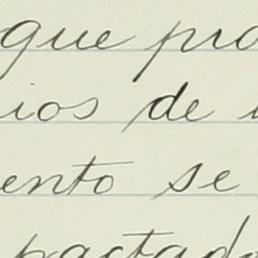 que pro
ios de
ento se
pactado